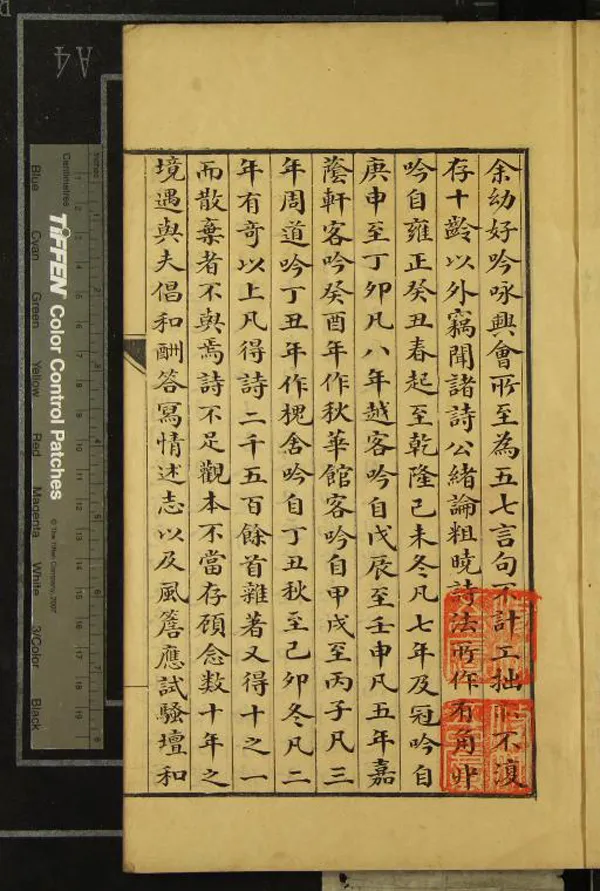 余幼好吟咏興會所至為五七言句不計工拙不復
存十齡以外竊聞諸詩公緒論粗曉詩法所作有角丱
吟自雍正癸丑春起至乾隆己未冬凡七年及冠吟自
庚申至丁卯凡八年越客吟自戊辰至壬申凡五年嘉
蔭軒客吟癸酉年作秋華館客吟自甲戌至丙子凡三
年周道吟丁丑年作槐舍吟自丁丑秋至己卯冬凡二
年有奇以上凡得詩二千五百餘首雜著又得十之一
而散棄者不與焉詩不足觀本不當存顧念數十年之
境遇與夫倡和酬答寫情述志以及風簷應試騷壇和
A4
Centimetres
TIFFEN Color Control Patches
© The Tiffen Company, 2007
Blue Cyan Green Yellow Red Magenta White 3/Color Black